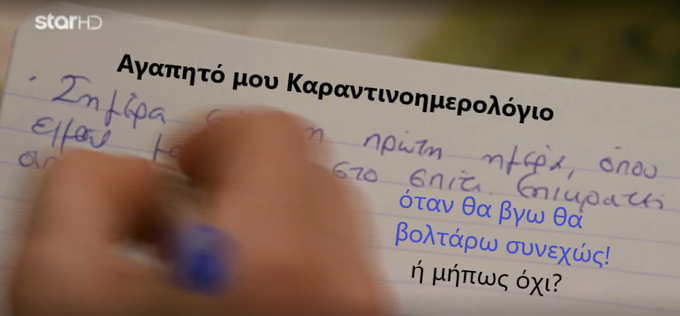 starHD
Αγαπητό μου Καραντινοημερολόγιο
Σημέρα η πρώτη ημέρα, όπου
είμαι στο σπίτι. Επικρατεί
όταν θα βγω θα
βολτάρω συνεχώς!
ή μήπως όχι?